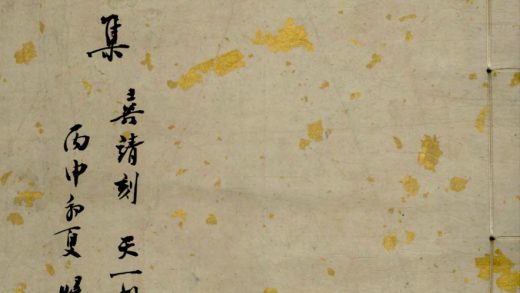 集
喜請刻 天一
丙申初夏